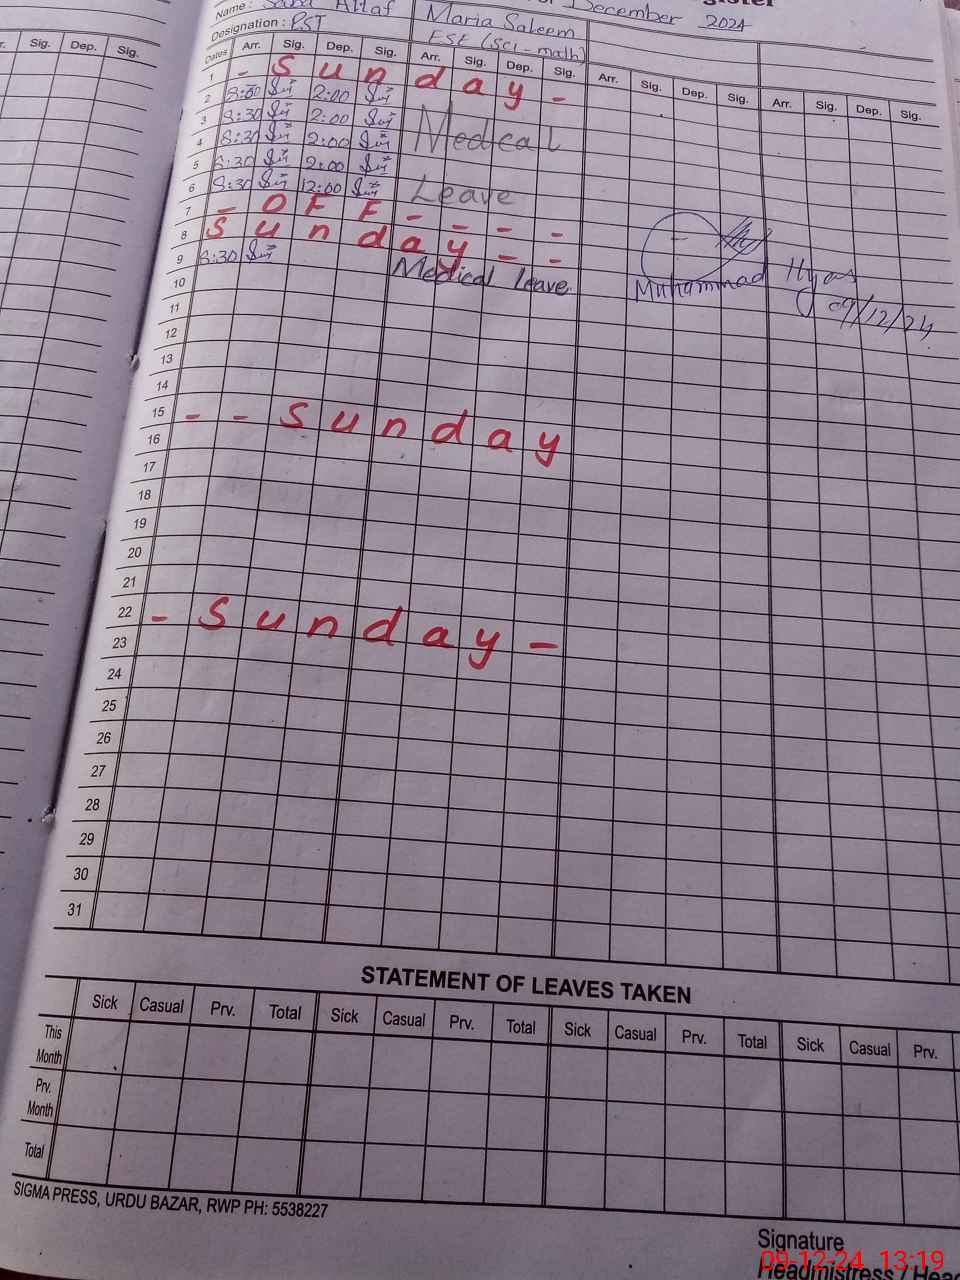 Register
December 2024
Name : Altaf Maria Saleem
Designation : PST EST (Sci-math)
Sig. Dep. Sig.
Dates Arr. Sig. Dep. Sig. Arr. Sig. Dep. Sig. Arr. Sig. Dep. Sig. Arr. Sig. Dep. Sig.
1 - Sunday -
2 8:00 2:00
3 8:30 2:00 Medical
4 8:30 2:00
5 8:30 2:00
6 8:30 12:00 Leave
7 - OFF - - - -
8 Sunday - -
9 8:30 Medical Leave
Muhammad
09/12/24
10
11
12
13
14
15 - - Sunday
16
17
18
19
20
21
22 - Sunday -
23
24
25
26
27
28
29
30
31
STATEMENT OF LEAVES TAKEN
Sick Casual Prv. Total Sick Casual Prv. Total Sick Casual Prv. Total Sick Casual Prv.
This Month
Prv. Month
Total
SIGMA PRESS, URDU BAZAR, RWP PH: 5538227
Signature
Headmistress / Head
09-12-24 13:19